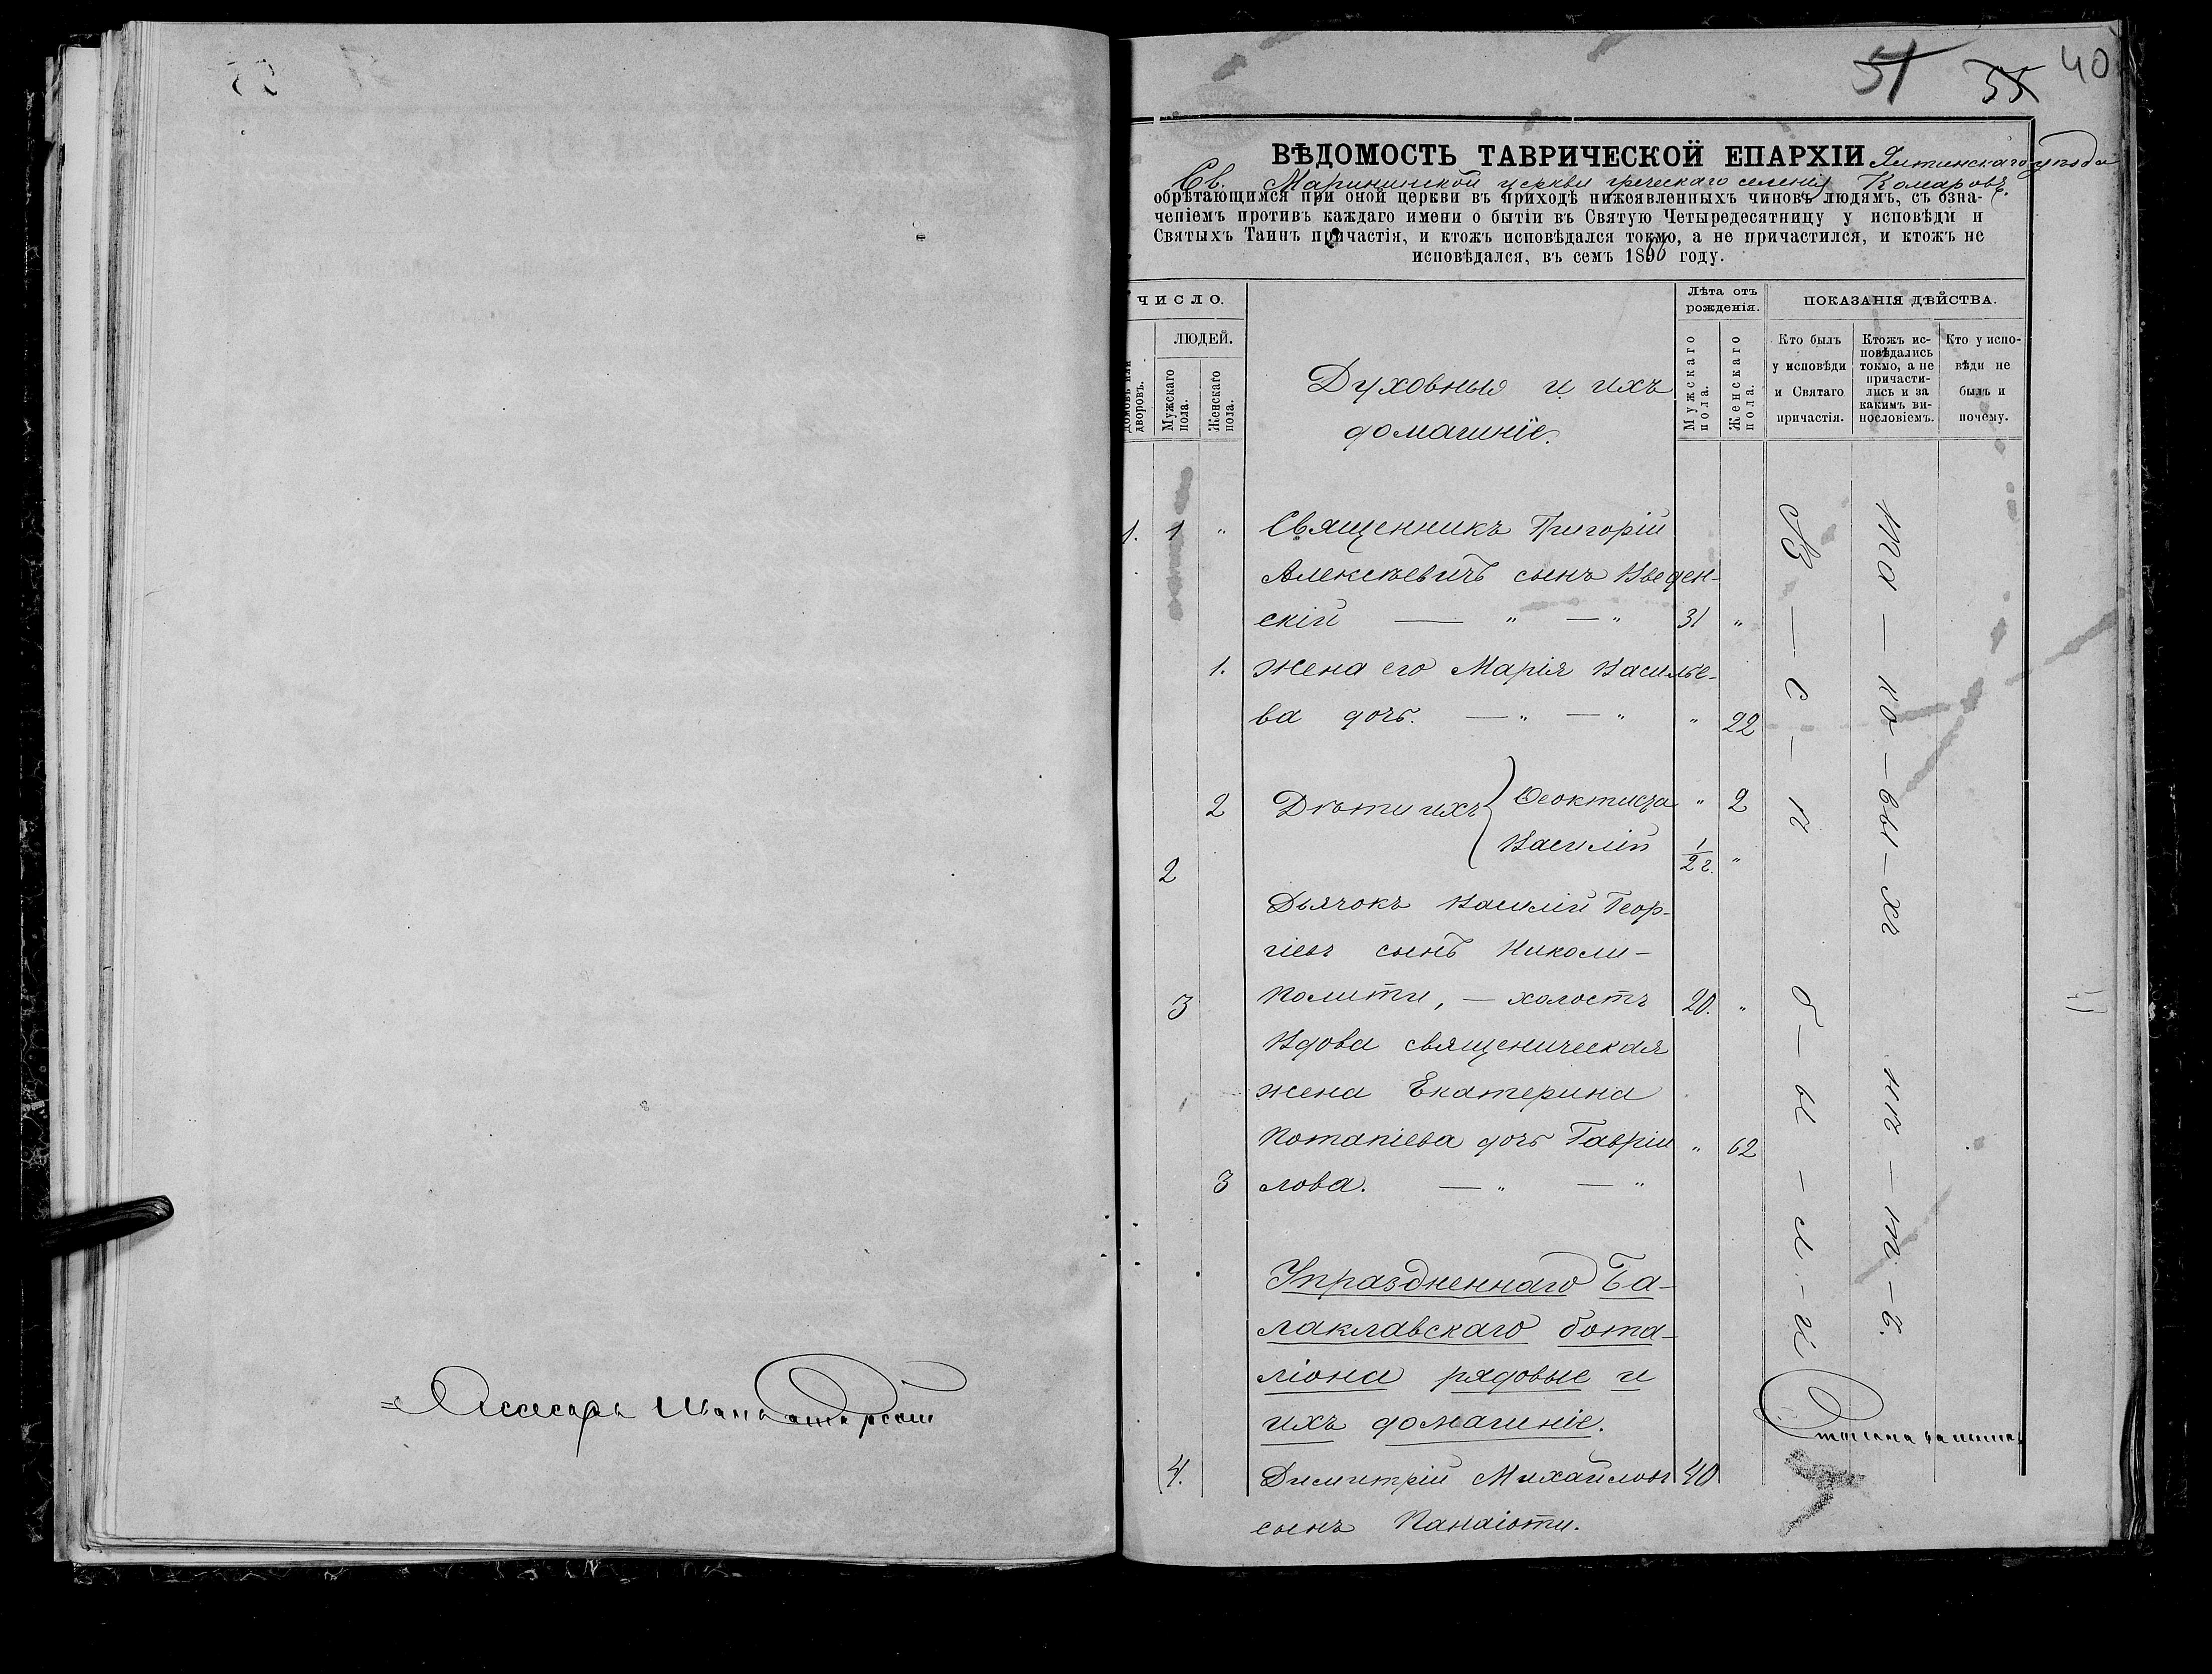 51 55 40
ВѢДОМОСТЬ ТАВРИЧЕСКОЙ ЕПАРХІИ Ялтинскаго уѣзда
Св. Марининской церкви греческаго селенія Комаровъ.
обрѣтающимся при оной церкви въ приходѣ нижеявленныхъ чиновъ людямъ, съ озна-
ченіемъ противъ каждаго имени о бытіи въ Святую Четыредесятницу у исповѣди и
Святыхъ Таинъ причастія, и ктожъ исповѣдался токмо, а не причастился, и ктожъ не
исповѣдался, въ семъ 18 году.
ЧИСЛО.
Домовъ или дворовъ.
ЛЮДЕЙ.
Мужскаго пола.
Женскаго пола.
Духовныя и ихъ
домашніе.
Лѣта отъ рожденія.
Мужскаго пола.
Женскаго пола.
ПОКАЗАНІЯ ДѢЙСТВА.
Кто былъ у исповѣди и Святаго причастія.
Ктожъ ис-повѣдались токмо, а не причасти-лись и за какимъ ви-нословіемъ.
Кто у испо-вѣди не былъ и почему.
1. 1 " Священникъ Григорій
Алексѣевичъ сынъ Введен-
скій — " — " 31 "
1. жена его Марія Василье-
ва дочь. — " — " " 22
2 Дѣти ихъ Ѳеоктиста " 2
2 Василій 1/2 г. "
Дьячокъ Василій Геор-
гіевъ сынъ Николи-
3 Полити, — холостъ 20. "
Вдова священическая
жена Екатерина
Потапіева дочь Гавріи " 62
3 лова. — " — "
Упраздненнаго Ба-
лаклавскаго бата-
ліона рядовые и
ихъ домашніе.
4. Димитрій Михайловъ 40
сынъ Панаіоти.